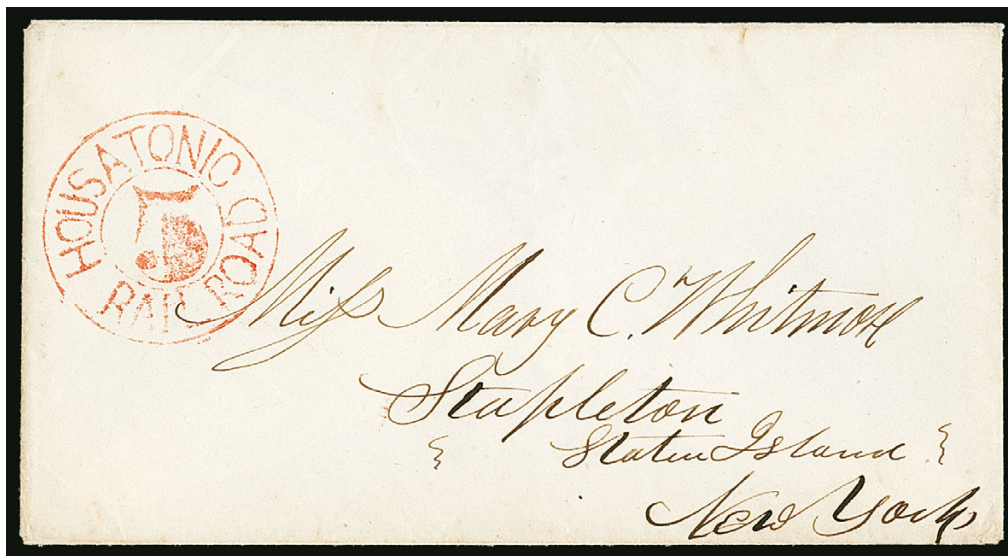 HOUSATONIC RAIL ROAD
5
Miss Mary C. Whitmore
Stapleton
Staten Island
New York